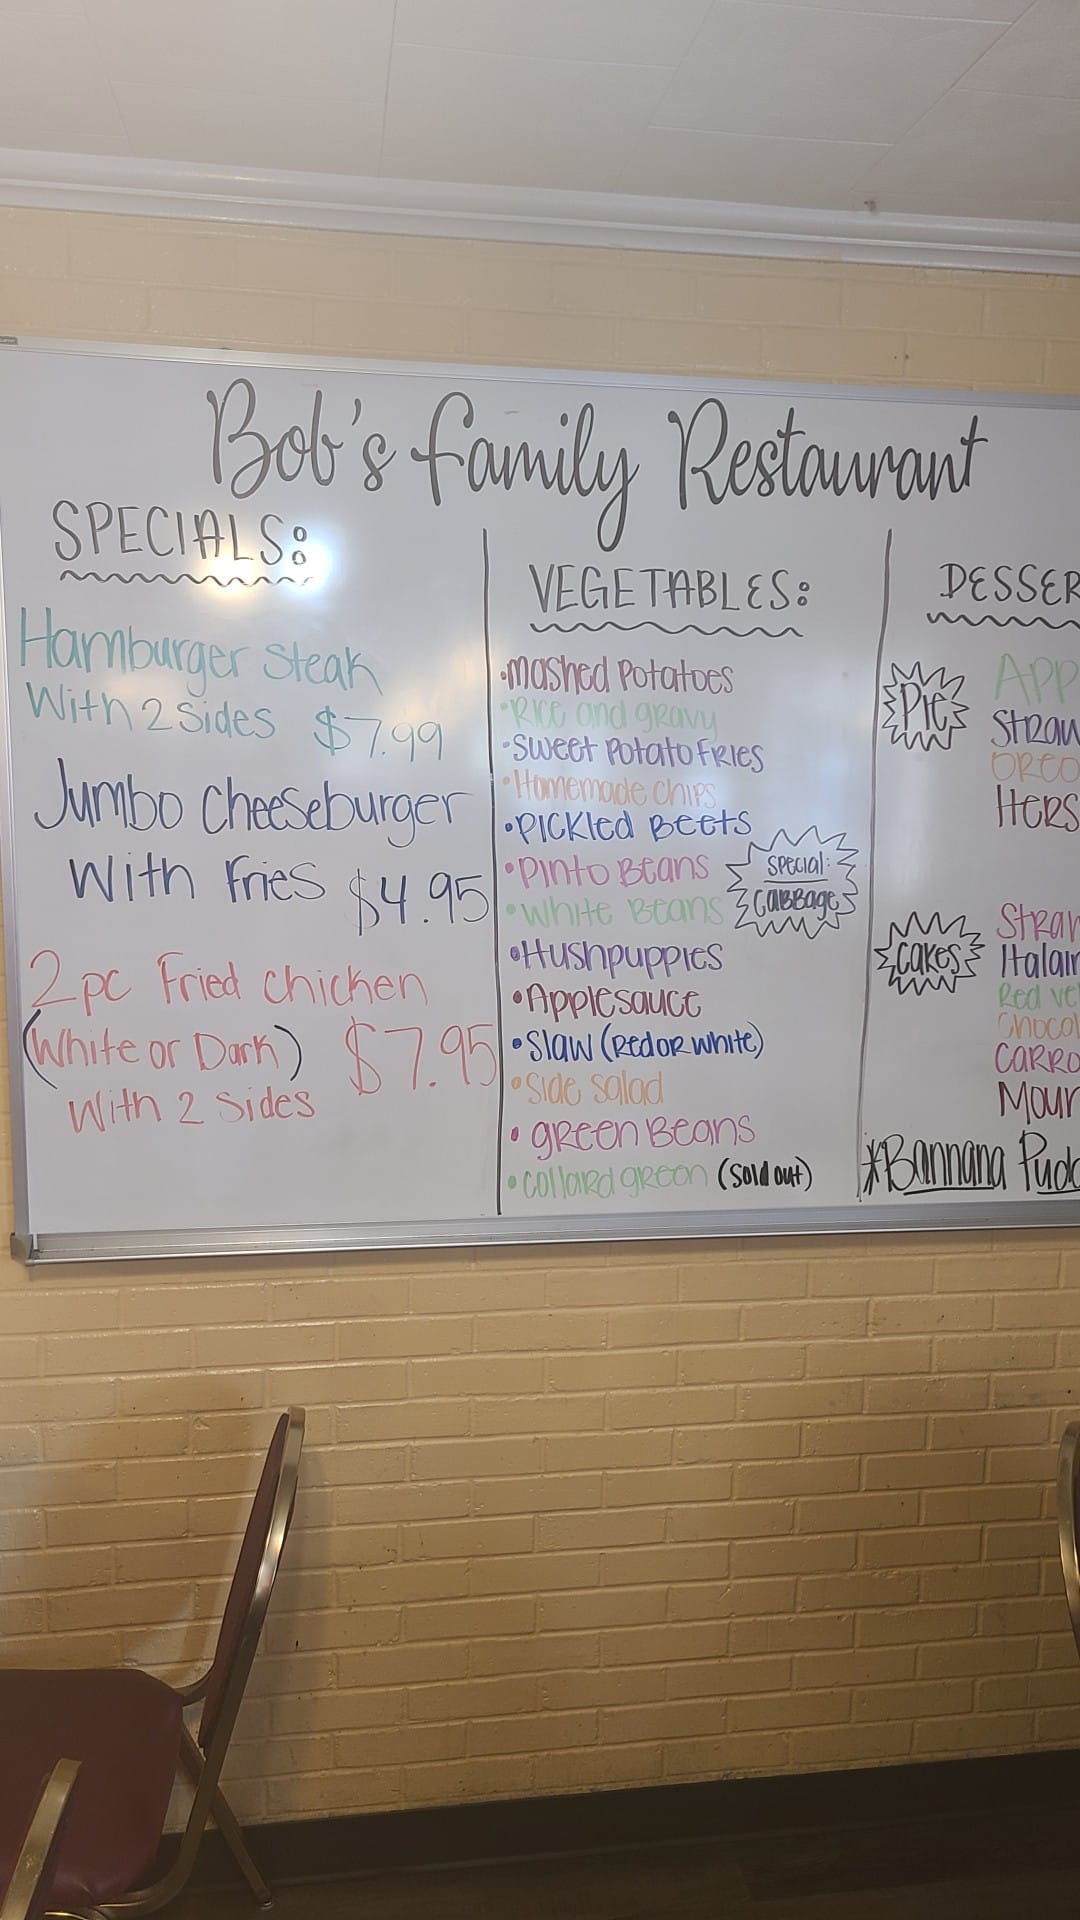 Bob's Family Restaurant
SPECIALS:
Hamburger Steak
With 2 Sides $7.99
Jumbo Cheeseburger
With Fries $4.95
2 pc Fried Chicken
(White or Dark) $7.95
With 2 Sides
VEGETABLES:
•Mashed Potatoes
•Rice and gravy
•Sweet Potato Fries
•Homemade Chips
•Pickled Beets
•Pinto Beans
•White Beans
•Hushpuppies
•Applesauce
•Slaw (Red or White)
•Side Salad
•Green Beans
•Collard green (Sold out)
Special:
Cabbage
DESSER
Pie
APP
Straw
Oreo
Hers
Cakes
Straw
Italain
Red ve
Chocol
Carro
Moun
*Bannana Pudd